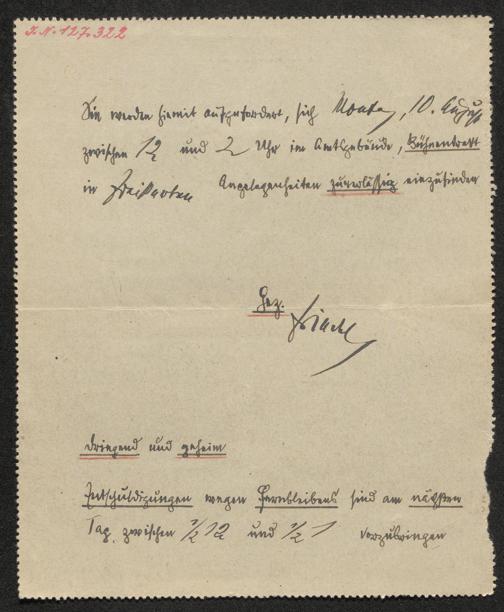 I.N. 127.322
Sie werden hiemit aufgefordert, sich Montag, 10. August
zwischen 12 und 2 Uhr im Amtsgebäude, Bühneneintritt
in Freikarten Angelegenheiten zuverlässig einzufinden
Gez.
dringend und geheim
Entschuldigungen wegen Fernbleibens sind am nächsten
Tag zwischen ½ 12 und ½ 1 vorzubringen